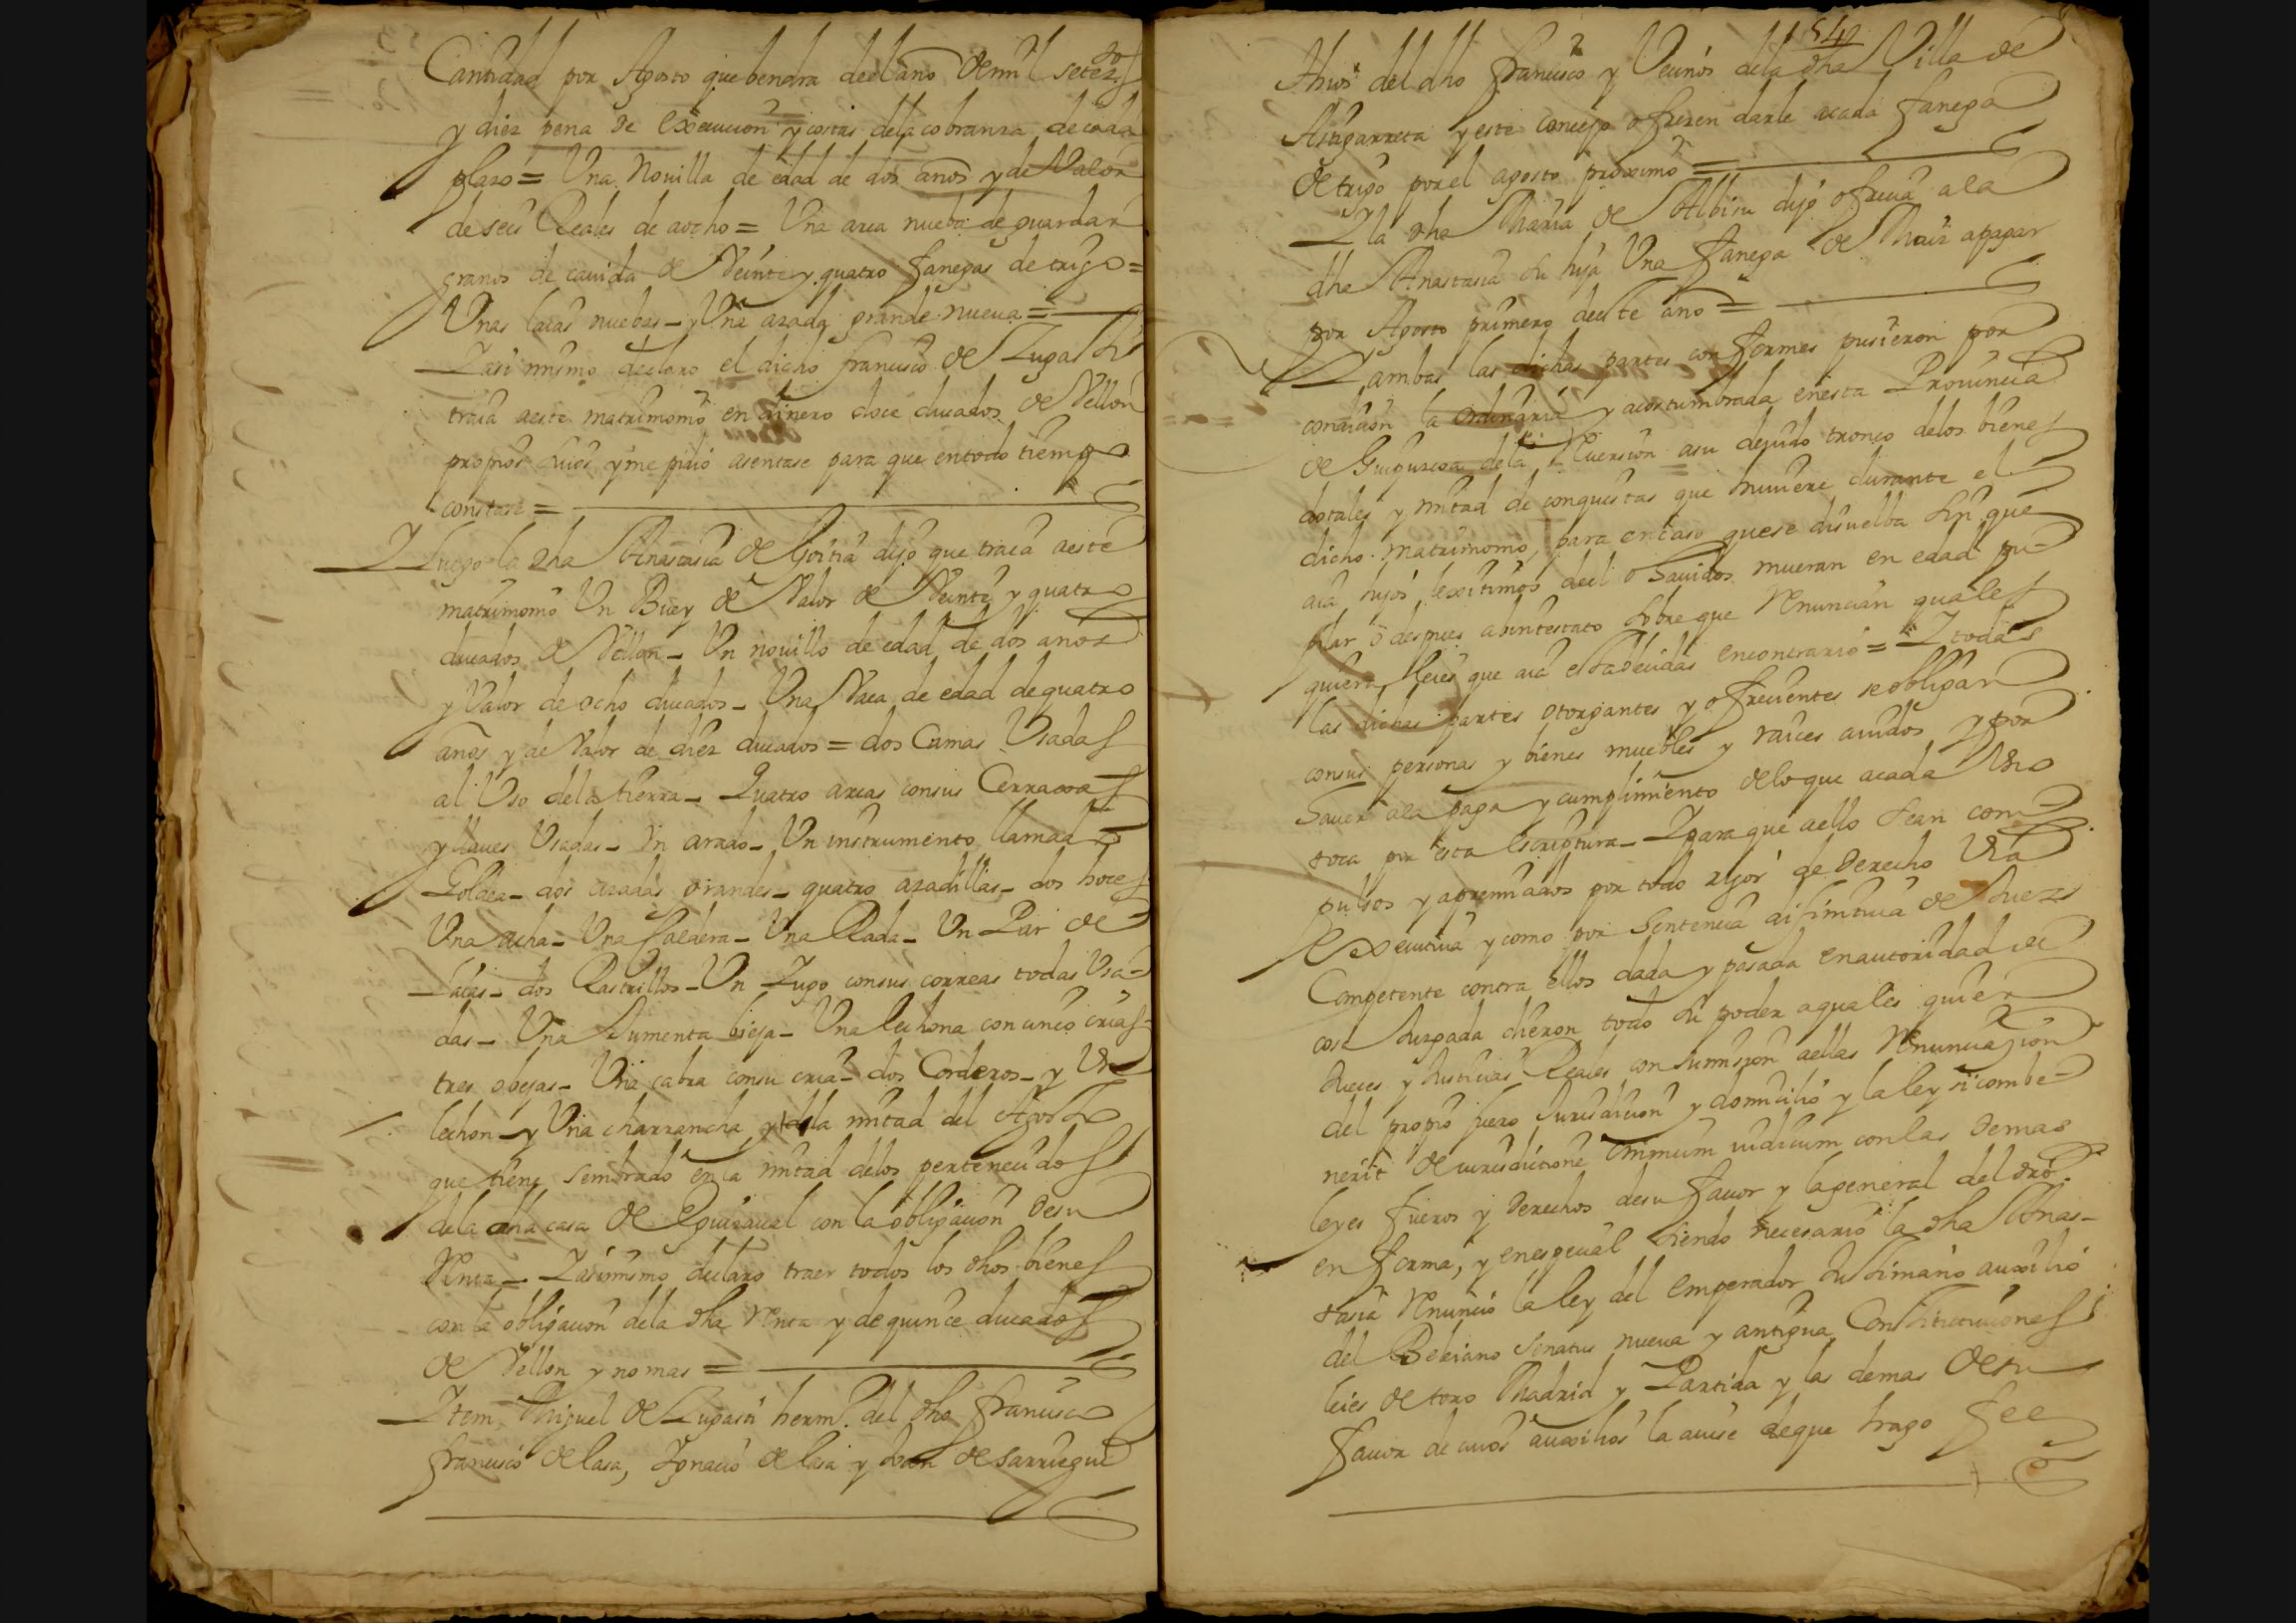 Cantidad por Agosto que bendra deel año de mil setezos
y diez pena de execucion y costas de la cobranza de cada
plazo = Una Novilla de edad de dos años y de Valor
de seis Reales de a ocho = Una arca nueba de guardar
granos de cavida de Veinte y quatro fanegas de trigo =
Unas laias nuebas - y Una azada grande nueva =
Y asi mismo declaro el dicho francisco de Zugasti
traia a este matrimonio en dinero doce ducados de Vellon
propios suios y me pidio asentase para que en todo tiempo
conste =
Y luego la dha Anastasia de Goitia dijo que traia a este
matrimonio Un Buey de Valor de Veinte y quatro
ducados de Vellon - Un novillo de edad de dos años
y Valor de ocho ducados - Una Vaca de edad de quatro
años y de Valor de diez ducados = dos Camas Usadas
al Uso de la tierra - Quatro arcas con sus Cerraxas
y llaves Usadas - Un arado - Un instrumento llamado
Goldea - dos azadas grandes - quatro azadillas - dos hoces
Una acha - Una Caldera - Una Rada - Un Par de
Laias - dos Rastrillos - Un Yugo con sus correas todas Usa-
das - Una Jumenta bieja - Una lechona con cinco crias -
tres obejas - Una cabra con su cria - dos Corderos - y Un
lechon - y Una charrancha y de la mitad del Agosto
que tiene sembrado en la mitad de los pertenecidos
de la dha casa de Eguizaval con la obligacion de su
Renta - Y asimismo declaro traer todos los dhos bienes
con la obligacion de la dha renta y de quince ducados
de Vellon y no mas =
Ytem Miguel de Zugasti hermo del dho francisco
francisco de lasa, Ygnacio de lasa y Juan de sarriegui
540
thios del dho francisco y Vecinos de la dha Villa de
Astigarreta y este concejo ofrecen darle a cada fanega
de trigo por el agosto proximo =
Y la dha Maria de Albisu dijo ofrecia a la
dha Anastasia su hija Una fanega de Maiz a pagar
por Agosto primero de este año =
Y ambas las dichas partes conformes pusieron por
condicion la ordinaria y acostumbrada en esta Provincia
de Guipuzcoa de la Reversion a su devido tronco de los bienes
dotales y mitad de conquistas que huviere durante el
dicho matrimonio, para en caso que se disuelba sin que
aia hijos lexitimos deel o havidos mueran en edad pu-
pilar o despues abintestato sobre que Renuncian quales
quiera leies que aia establecidas en contrario = Y todas
las dichas partes otorgantes y ofrecientes se obligan
con sus personas y bienes muebles y raices avidos y por
haver a la paga y cumplimiento de lo que a cada Uno
toca por esta escriptura - Y para que a ello sean com-
pulsos y apremiados por todo rigor de derecho Via
executiva y como por Sentencia difinitiva de Juez
Competente contra ellos dada y pasada en autoridad de
cosa Juzgada dieron todo su poder a quales quier
Jueces y Justicias Reales con sumision a ellas Renunciacion
del propio fuero Jurisdicion y domicilio y la ley si combe-
nerit de iurisdictione omnium iudicum con las demas
leyes fueros y derechos de su favor y la general del dro
en forma, y en especial siendo necesario la dha Anas-
tasia Renuncio la ley del Emperador Justiniano auxilio
del Beleiano Senatus nueva y antigua Constituciones
leies de toro Madrid y Partida y las demas de su
favor de cuios auxilios la avise de que hago fee